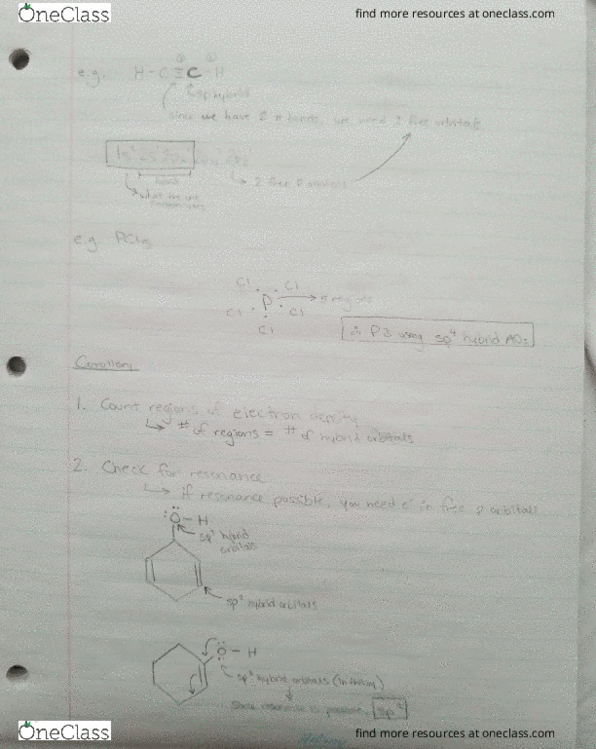 OneClass
find more resources at oneclass.com
e.g. H-C≡C H
sp hybrid
since we have 2 π bonds, we need 2 free orbitals
2 free p orbitals
e.g. PCl5
Cl Cl
P 5 regions
Cl Cl
Cl
∴ P3 using sp4 hybrid AOs
Corollary
1. Count regions of electron density
↳ # of regions = # of hybrid orbitals
2. Check for resonance
↳ if resonance possible, you need e- in free p orbitals
O - H
sp3 hybrid
orbitals
sp2 hybrid orbitals
O - H
sp3 hybrid orbitals (in theory)
since resonance is possible, sp2
OneClass
find more resources at oneclass.com